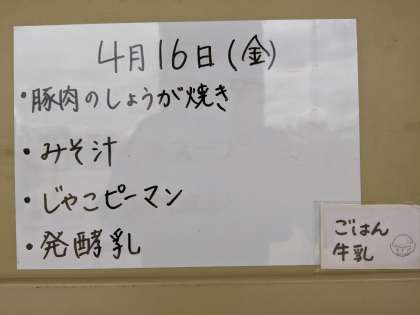 4月16日(金)
・豚肉のしょうが焼き
・みそ汁
・じゃこピーマン
・発酵乳
ごはん
牛乳